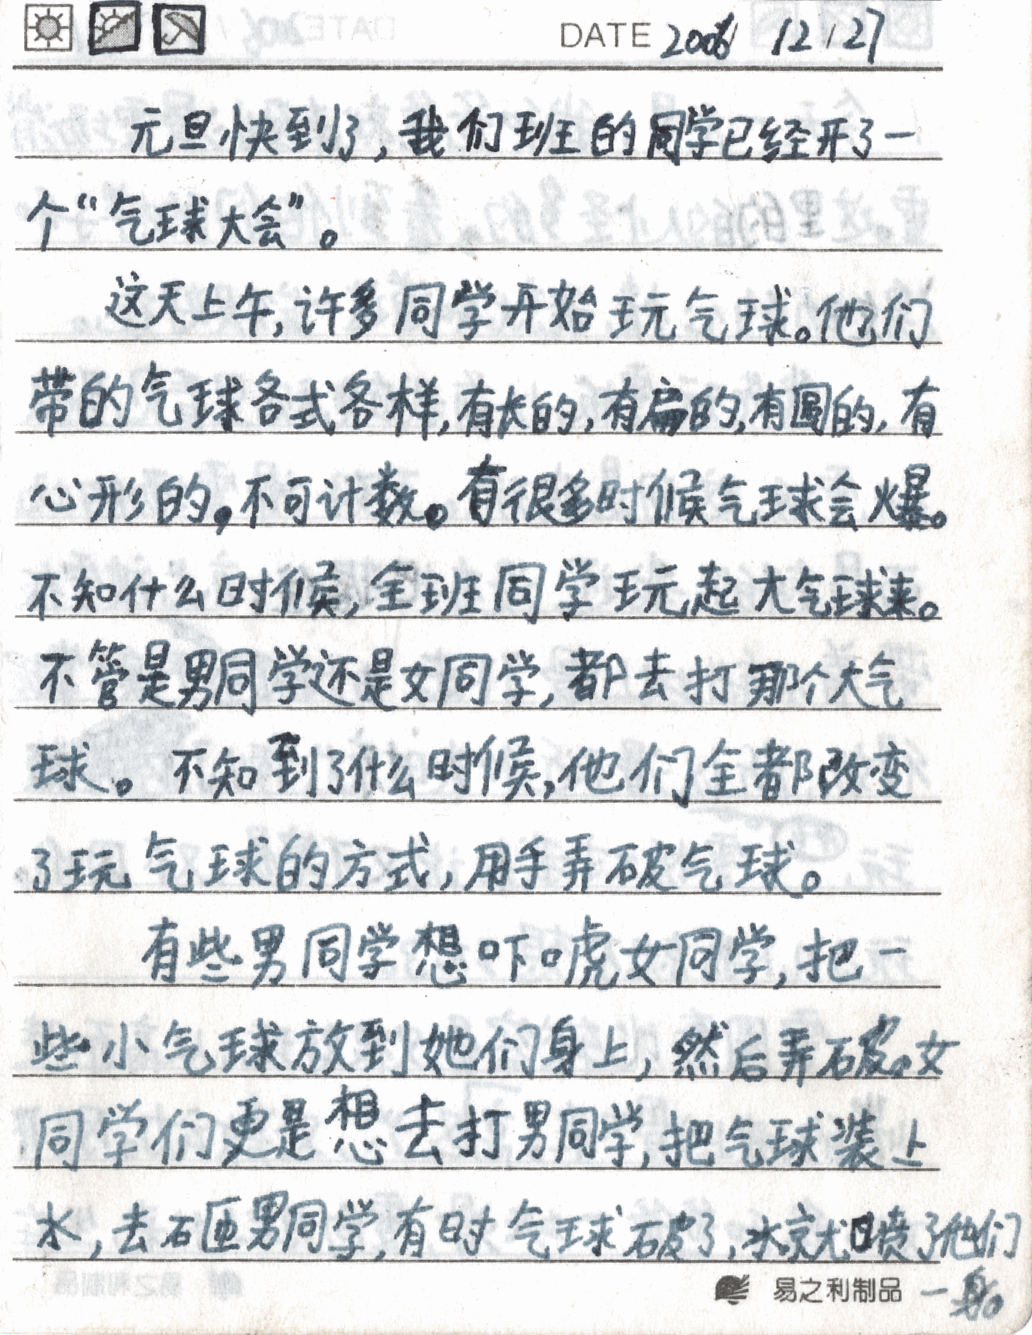 DATE 2006 12 27
元旦快到了，我们班的同学已经开了一
个“气球大会”。
这天上午，许多同学开始玩气球。他们
带的气球各式各样，有长的，有扁的，有圆的，有
心形的，不可计数。有很多时候气球会爆。
不知什么时候，全班同学玩起大气球来。
不管是男同学还是女同学，都去打那个大气
球。不知到了什么时候，他们全都改变
了玩气球的方式，用手弄破气球。
有些男同学想吓唬女同学，把一
些小气球放到她们身上，然后弄破。女
同学们更是想去打男同学，把气球装上
水，去砸男同学，有时气球破了，水就喷了他们
一身。
易之利制品